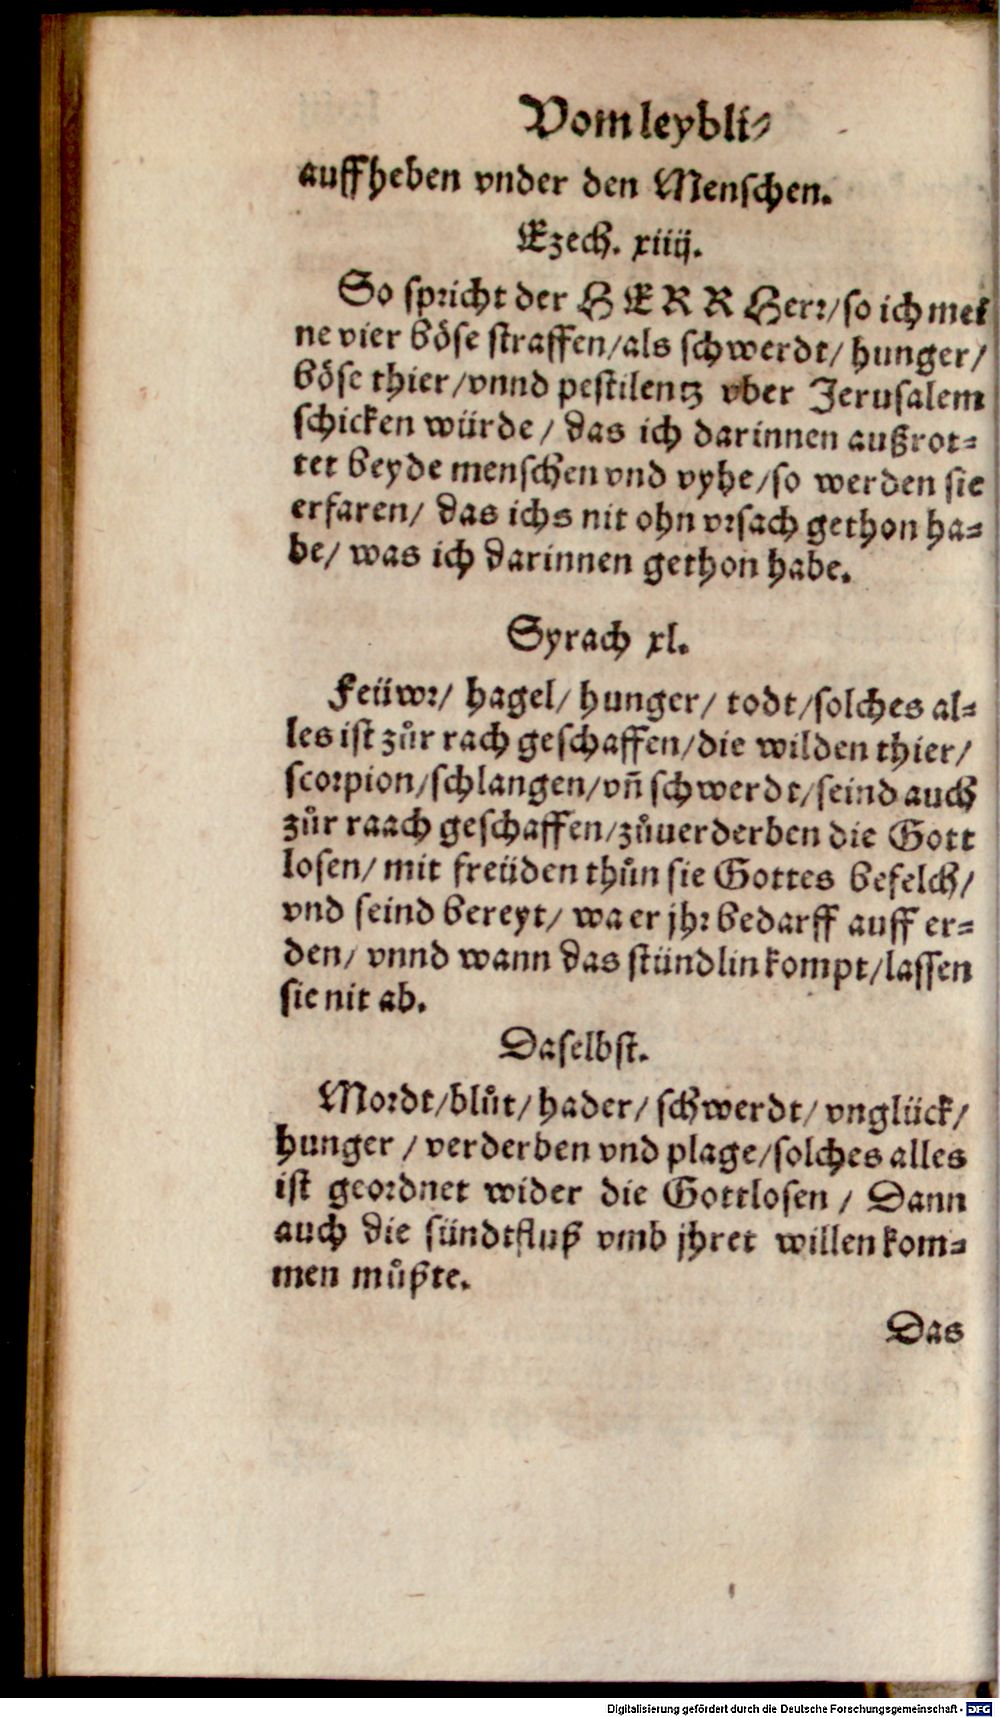 Vom leybli⸗
auffheben vnder den Menschen.
Ezech. xiiij.
So spricht der HERR Herr/so ich mei
ne vier böse straffen/als schwerdt/ hunger/
böse thier/vnnd pestilentz vber Jerusalem
schicken würde/ das ich darinnen außrot⸗
tet beyde menschen vnd vyhe/so werden sie
erfaren/ das ichs nit ohn vrsach gethon ha⸗
be/ was ich darinnen gethon habe.
Syrach xl.
Feüwr/ hagel/ hunger/ todt/solches al⸗
les ist zůr rach geschaffen/die wilden thier/
scorpion/schlangen/vñ schwerdt/seind auch
zůr raach geschaffen/zůuerderben die Gott
losen/ mit freüden thůn sie Gottes befelch/
vnd seind bereyt/ wa er jhr bedarff auff er⸗
den/ vnnd wann das stündlin kompt/lassen
sie nit ab.
Daselbst.
Mordt/blůt/ hader/ schwerdt/ vnglück/
hunger / verderben vnd plage/solches alles
ist geordnet wider die Gottlosen / Dann
auch die sündtfluß vmb jhret willen kom⸗
men můßte.
Das
Digitalisierung gefördert durch die Deutsche Forschungsgemeinschaft - DFG